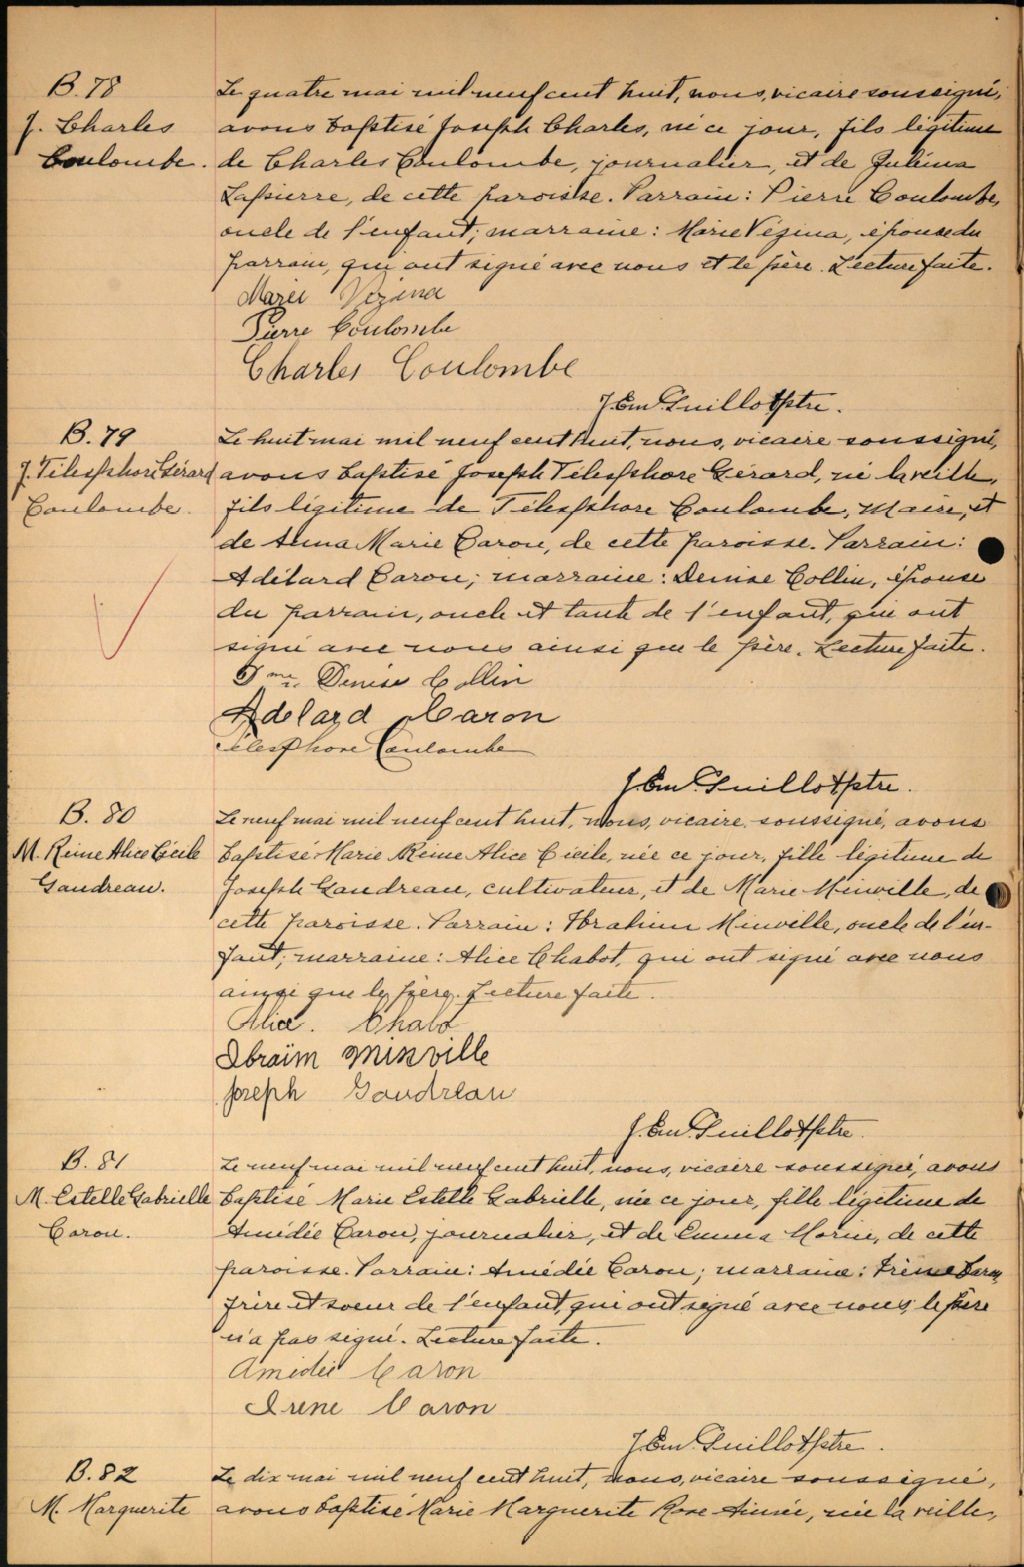 B. 78
J. Charles
Coulombe.
Le quatre mai mil neuf cent huit, nous, vicaire soussigné,
avons baptisé Joseph Charles, né ce jour, fils légitime
de Charles Coulombe, journalier, et de Juléma
Lapierre, de cette paroisse. Parrain: Pierre Coulombe,
oncle de l'enfant; marraine: Marie Vézina, épouse du
parrain, qui ont signé avec nous et le père. Lecture faite.
Marie Vezina
Pierre Coulombe
Charles Coulombe
J. Em. Guillot ptre.
B. 79
J. Télesphore Gérard
Coulombe.
Le huit mai mil neuf cent huit, nous, vicaire soussigné,
avons baptisé Joseph Télesphore Gérard, né la veille,
fils légitime de Télesphore Coulombe, Maire, et
de Anna Marie Caron, de cette paroisse. Parrain:
Adélard Caron; marraine: Denise Collin, épouse
du parrain, oncle et tante de l'enfant, qui ont
signé avec nous ainsi que le père. Lecture faite.
Dme Denise Collin
Adelard Caron
Télesphore Coulombe
J. Em. Guillot ptre.
B. 80
M. Reine Alice Cécile
Gaudreau.
Le neuf mai mil neuf cent huit, nous, vicaire soussigné, avons
baptisé Marie Reine Alice Cécile, née ce jour, fille légitime de
Joseph Gaudreau, cultivateur, et de Marie Minville, de
cette paroisse. Parrain: Ibrahim Minville, oncle de l'en-
fant; marraine: Alice Chabot, qui ont signé avec nous
ainsi que le père. Lecture faite.
Alice. Chabot
Ibraïm Minville
Joseph Gaudreau
J. Em. Guillot ptre.
B. 81
M. Estelle Gabrielle
Caron.
Le neuf mai mil neuf cent huit, nous, vicaire soussigné, avons
baptisé Marie Estelle Gabrielle, née ce jour, fille légitime de
Amédée Caron, journalier, et de Emma Morin, de cette
paroisse. Parrain: Amédée Caron; marraine: Irène Caron,
frère et soeur de l'enfant, qui ont signé avec nous; le père
n'a pas signé. Lecture faite.
Amédée Caron
Irene Caron
J. Em. Guillot ptre.
B. 82
M. Marguerite
Le dix mai mil neuf cent huit, nous, vicaire soussigné,
avons baptisé Marie Marguerite Rose-Aimée, née la veille,